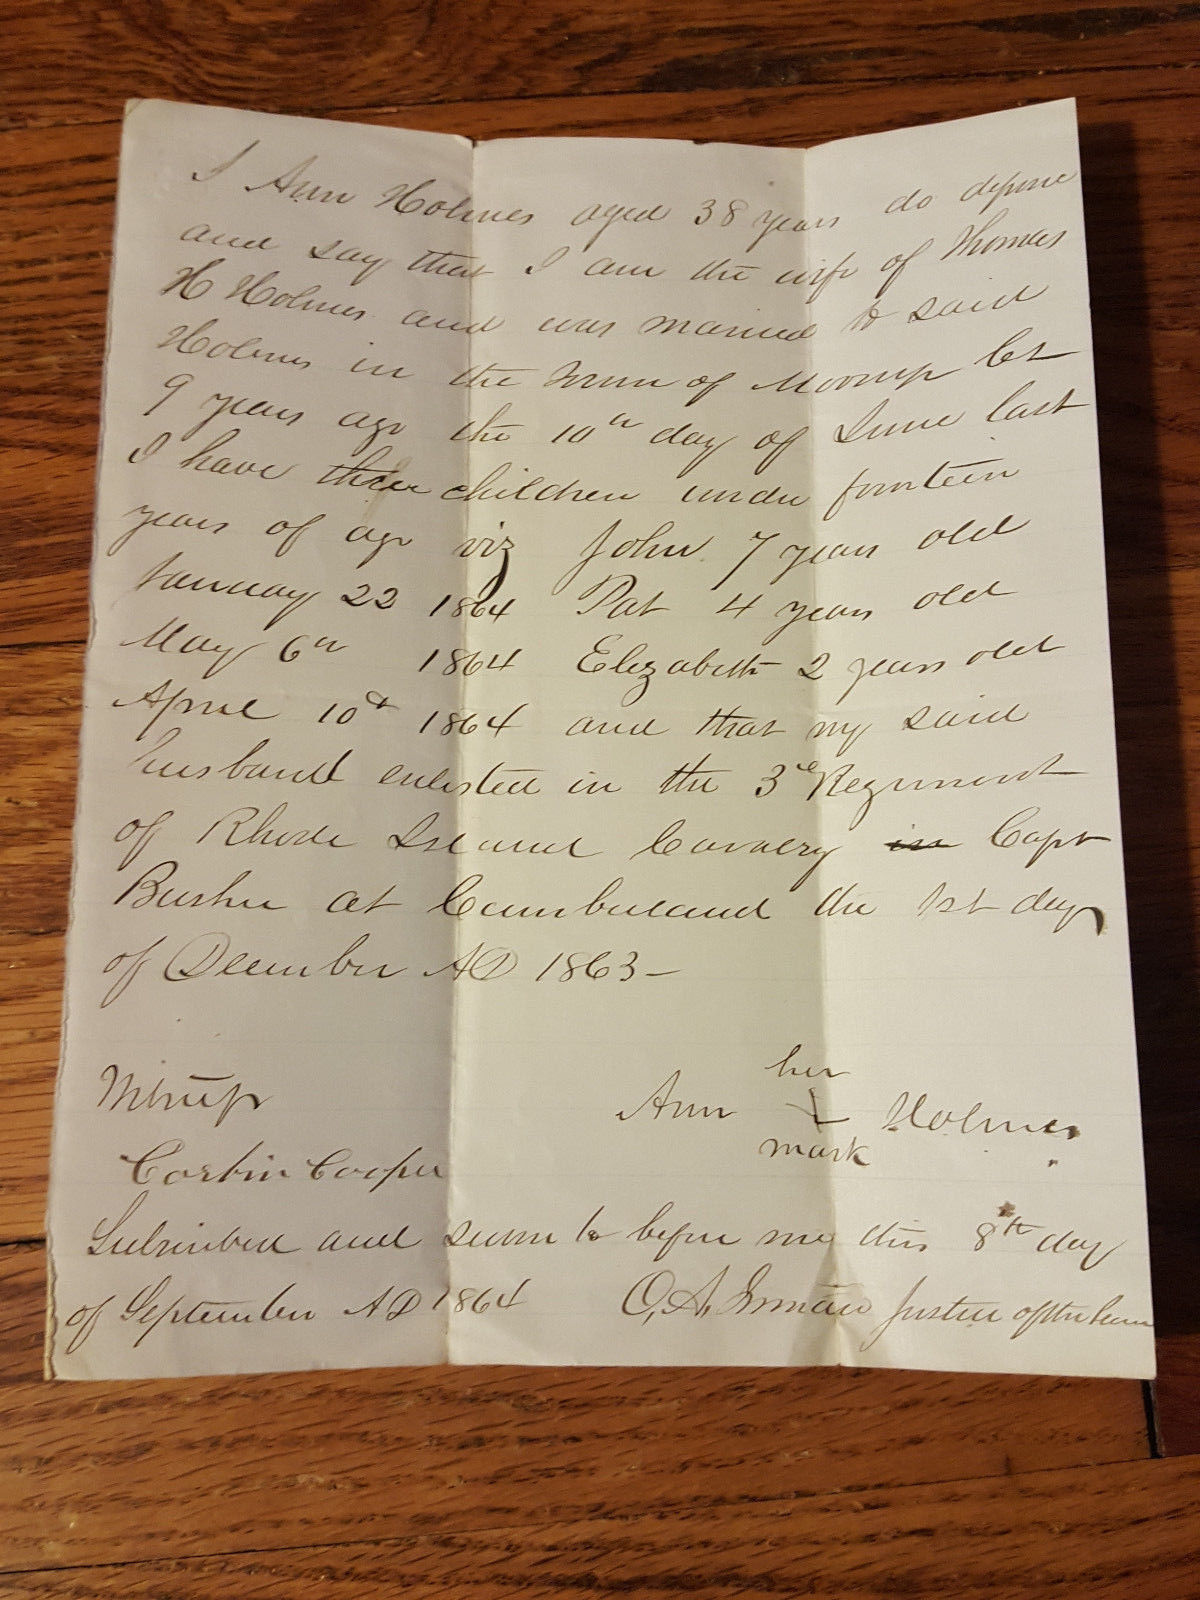 I Ann Holmes aged 38 years do depose
and say that I am the wife of Thomas
H Holmes and was married to said
Holmes in the town of Moosup Ct
9 years ago the 10th day of June last
I have three children under fourteen
years of age viz John 7 years old
January 22 1864 Pat 4 years old
May 6th 1864 Elizabeth 2 years old
April 10th 1864 and that my said
husband enlisted in the 3d Regiment
of Rhode Island Cavalry in Capt
at Cumberland the 1st day
of December AD 1863 —
her
Ann X Holmes
mark
Witness
Corbin Cooper
Subscribed and sworn to before me this 8th day
of September AD 1864 O. A. Inman Justice of the